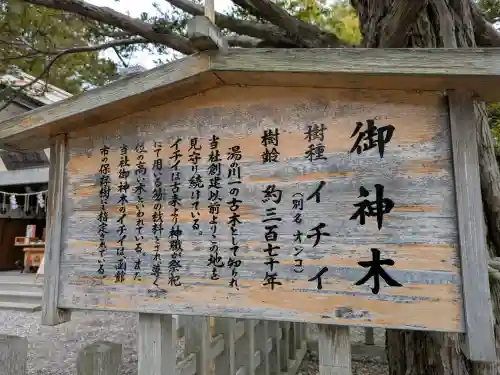 御神木
樹種　イチイ
（別名 オンコ）
樹齢　約三百七十年
湯の川一の古木として知られ
当社創建以前よりこの地を
見守り続けている。
イチイは古来より神職が祭祀
に用いる笏の材料とされ尊く
位の高い木といわれている。また
当社御神木のイチイは函館
市の保存樹に指定されている。